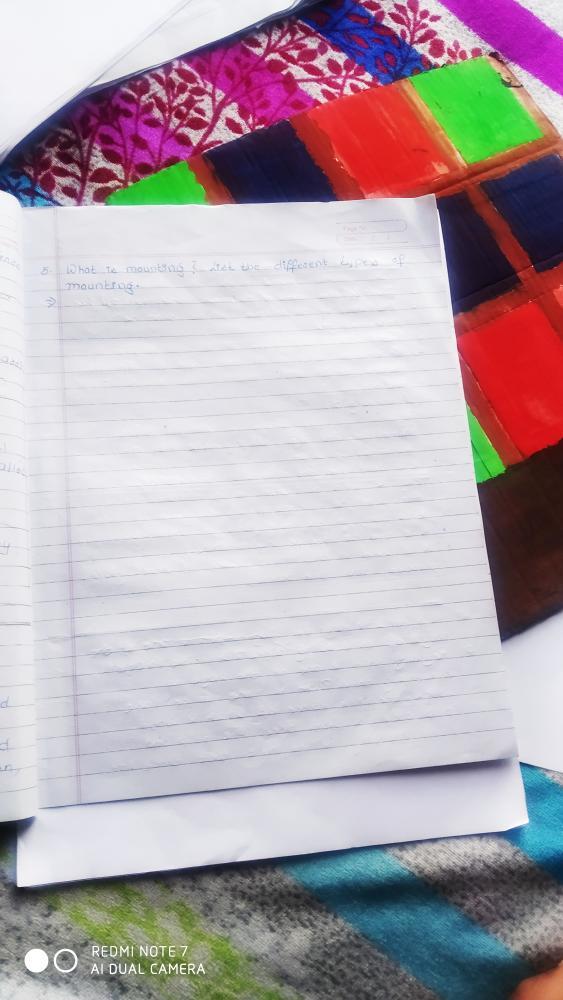 Page No.
Date
5. What is mounting & List the different types of
mounting.
⇒
d
d
REDMI NOTE 7
AI DUAL CAMERA